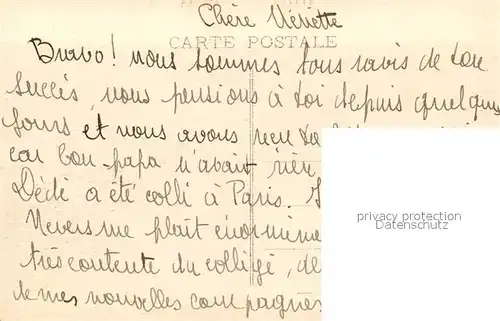 Chère Mériette
CARTE POSTALE
Bravo! nous sommes tous ravis de ton
succès, nous pensions à toi depuis quelques
jours et nous avons reçu ta
car bon-papa n'avait rien
Dédé a été collé à Paris.
Nevers me plaît énormément
très contente du collège, de
de mes nouvelles compagnes
privacy protection
Datenschutz